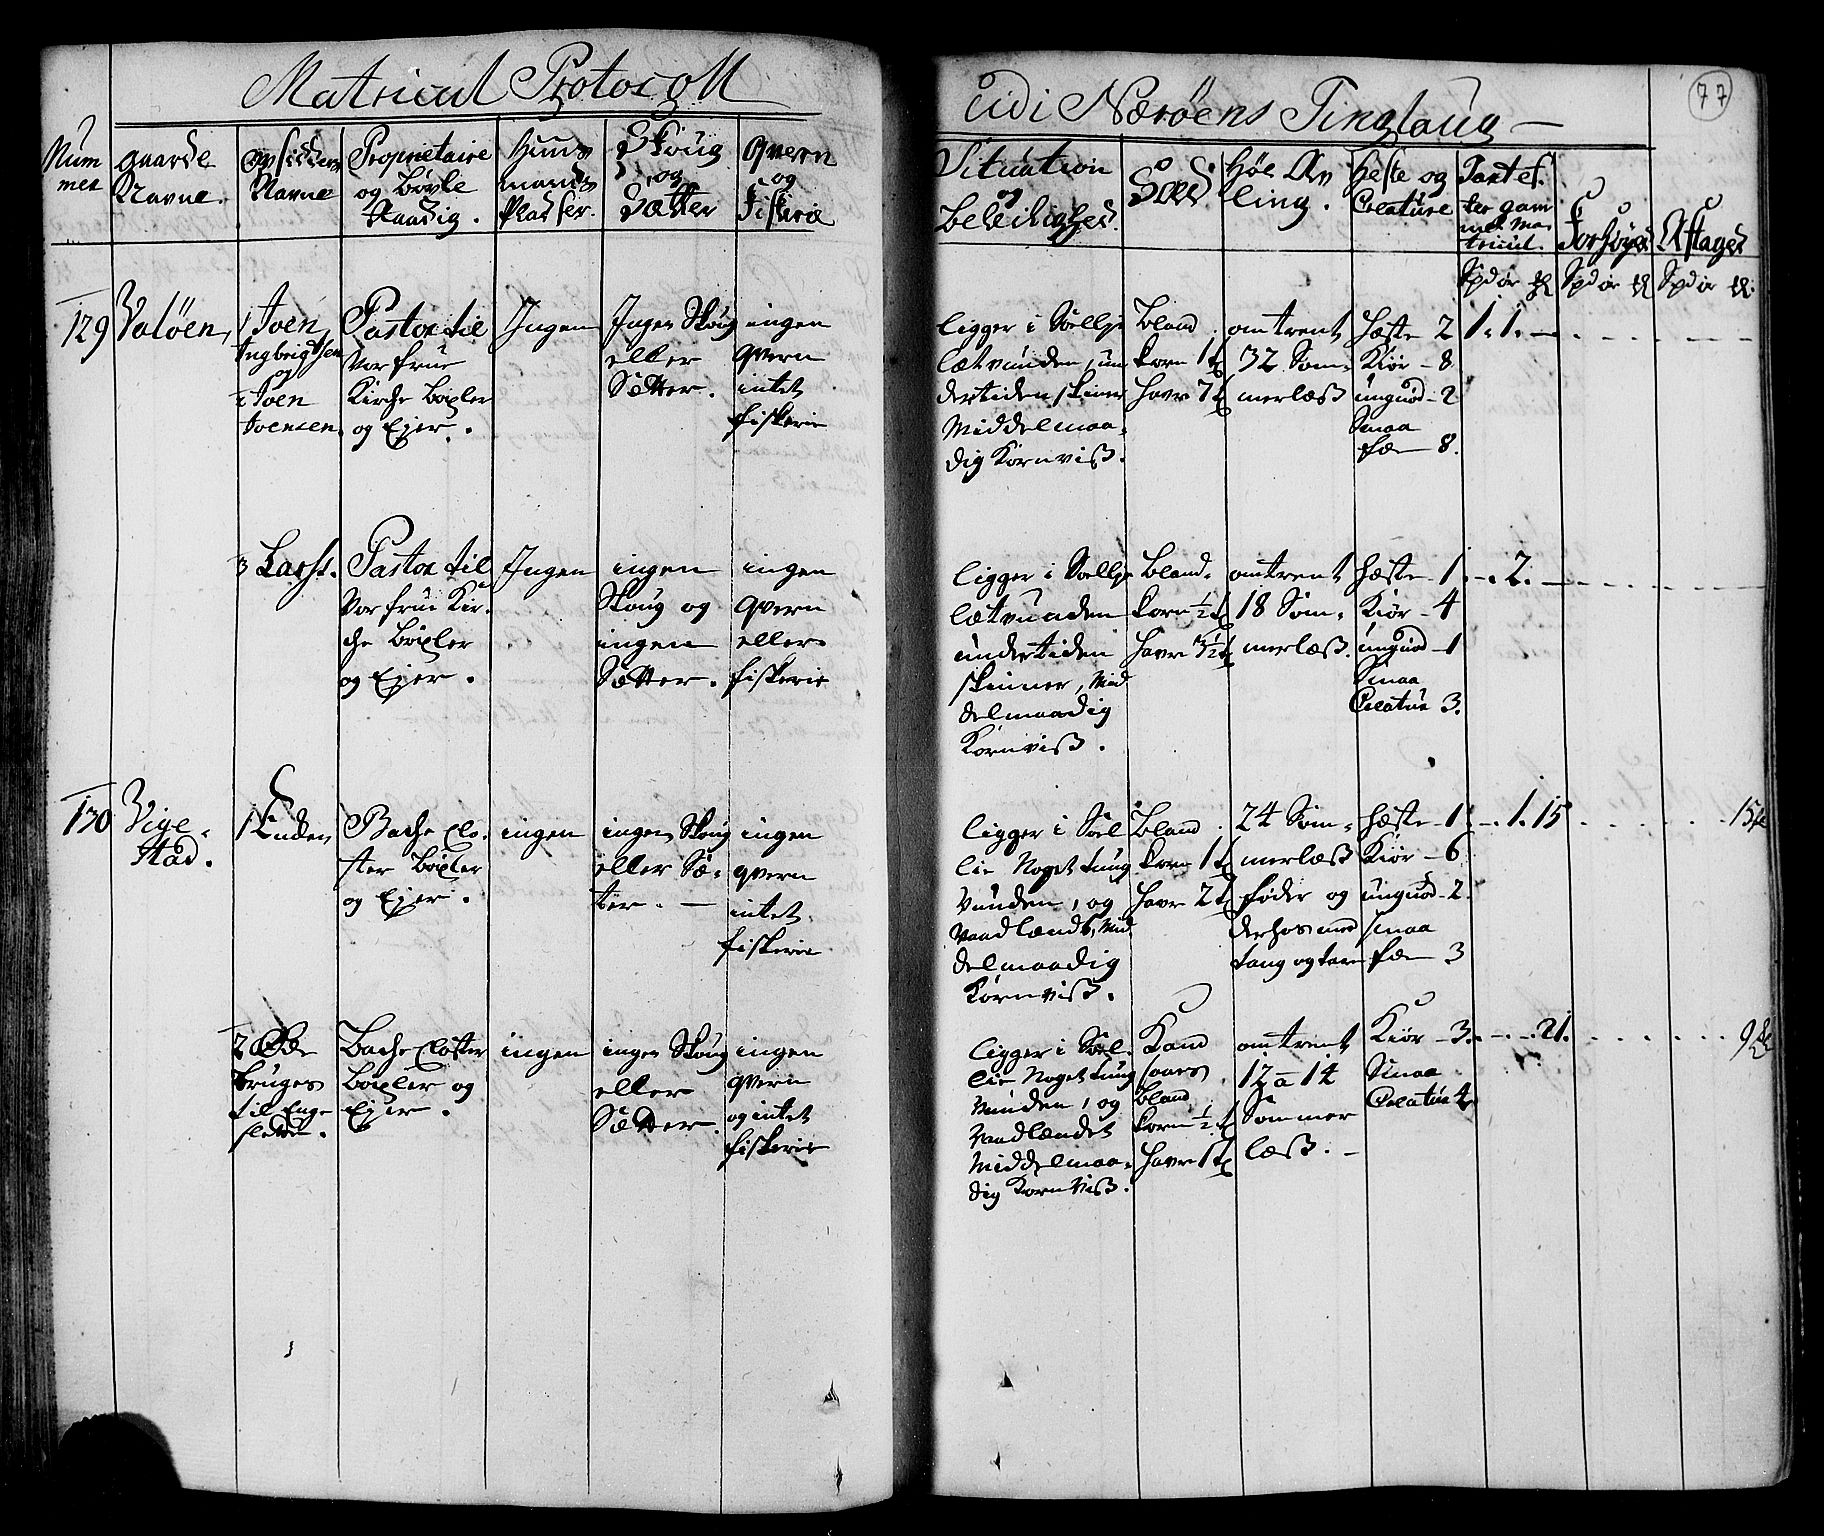 Matricul Protocoll
udi Nærøens Tinglaug
77
Num
mer
gaarde
Navne.
opsidders
Navne
Proprietaire
og Böxle
Raadig.
Huus
mands
Pladser.
Skoug
og
Sætter
Qvern
og
Fiskerie
Situation
og
beleilighed.
Sæd.
Høe Av
ling.
Heste og
Creature
Taxt ef-
ter gam
mel Ma-
tricul.
Forhøyet
Aftaget
Spd ør
Spd ør
Spd ør
129
Valöen,
1 Joen
Ingbrigtsen
og
2 Joen
Joensen.
Pastor til
Vor frue
Kirche böxler
og Ejer.
Ingen
Ingen Skoug
eller
Sætter.
ingen
qvern
intet
fiskerie
ligger i Soellje
lætvunden, un
dertiden skiner
Middelmaa-
dig Kornviß.
Bland
korn 1 t
havre 7 t
omtrent
32 Som-
merlæß
Hæste 2
Kiör - 8
ungnød - 2
Smaa
fæe - 8.
1. 1. -
3 Lars.
Pastor til
Vor frue Kir-
che böxler
og Ejer.
Ingen
ingen
Skoug og
ingen
Sætter.
ingen
qvern
eller
fiskerie
ligger i Soellje
lætvunden
undertiden
skinner, Mid
delmaadig
Kornviß.
Bland-
korn ½ t
havre 3½ t
omtrent
18 Som-
merlæß.
hæste - 1.
Kiör - 4
ungnød - 1
Smaa
Creatur 3.
- 2. -
130
Vige-
stad.
1 Enden
Bache Clo-
ster böxler
og Ejer.
ingen
ingen Skoug
eller Sæ-
ter. -
ingen
qvern
intet
fiskerie.
ligger i Soel
lie Noget tung
Vunden, og
Vandlændt, Mid
delmaadig
Kornviß.
Bland
korn 1 t
havre 2 t
24 Som-
merlæß
föder og
derhos med
tang og tare
hæste - 1
Kiör - 6
ungnød - 2.
smaa
fæe 3
- 1. 15
15
2 Øde
bruges
til Enge
slette.
Bache Closter
böxler og
Ejer.
ingen
ingen Skoug
eller
Sætter.
ingen
qvern
og intet
fiskerie
ligger i Soel-
lie Noget tung
Vunden, og
Vandlændet
Middelmaa-
dig Kornviß.
Kand
saaes
bland
korn ½ t
havre 1 t
omtrent
12 a 14
Sommer
læß. -
Kiör - 3.
Smaa
Creatur 4
- - 21.
9